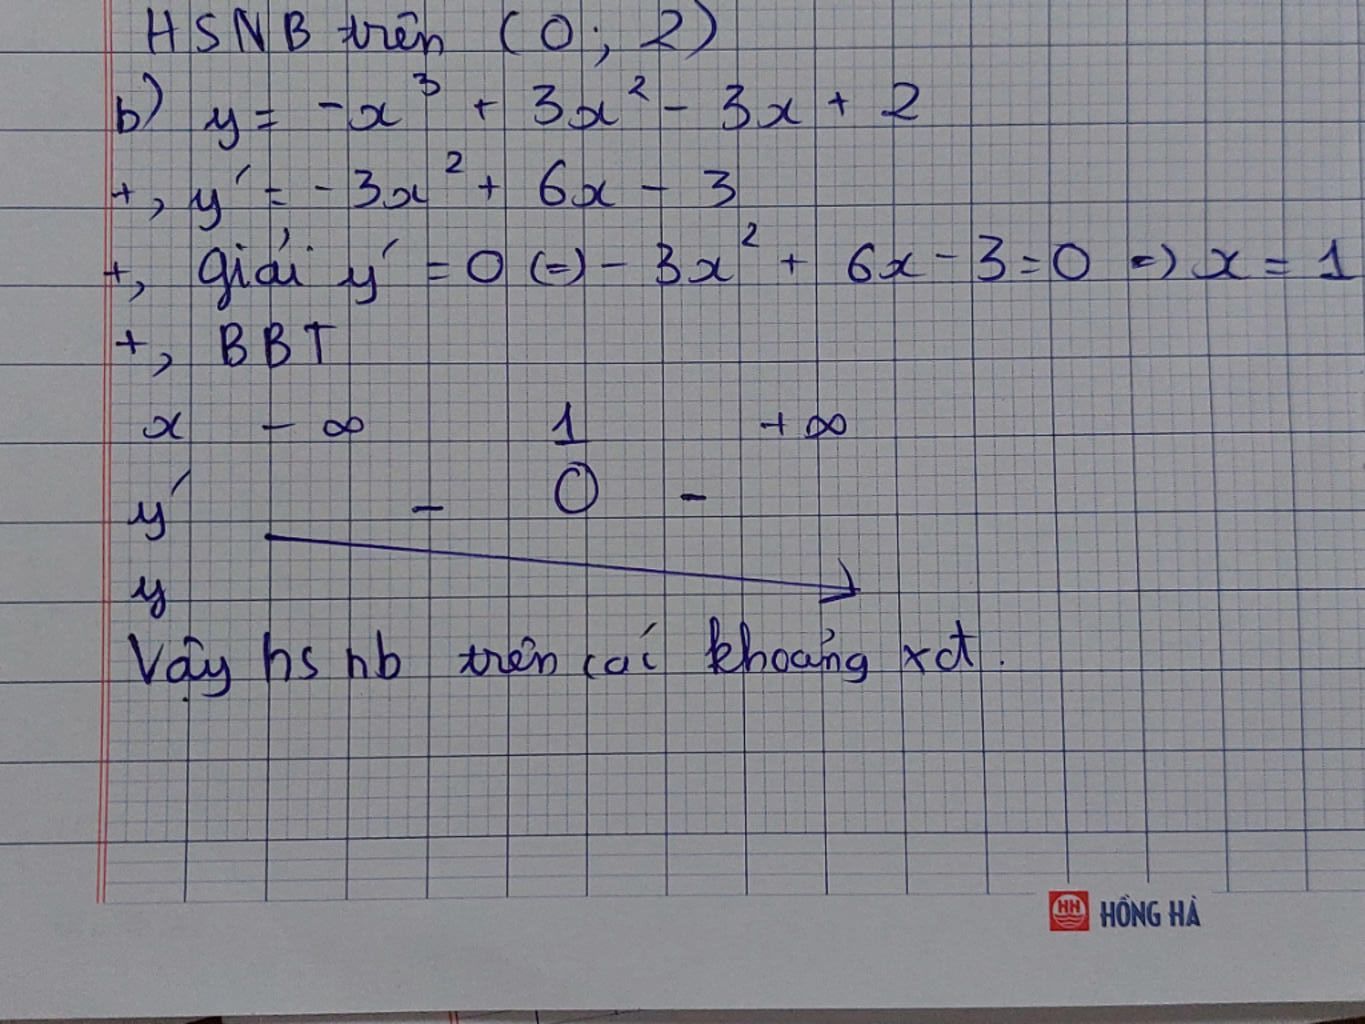 HSNB trên (0; 2)
b) y = -x³ + 3x² - 3x + 2
+, y' = -3x² + 6x - 3
+, giải y' = 0 (=) - 3x² + 6x - 3 = 0 =) x = 1
+, BBT
x -∞ 1 +∞
y' - 0 -
y
Vậy hs nb trên các khoảng xđ.
HH HỒNG HÀ